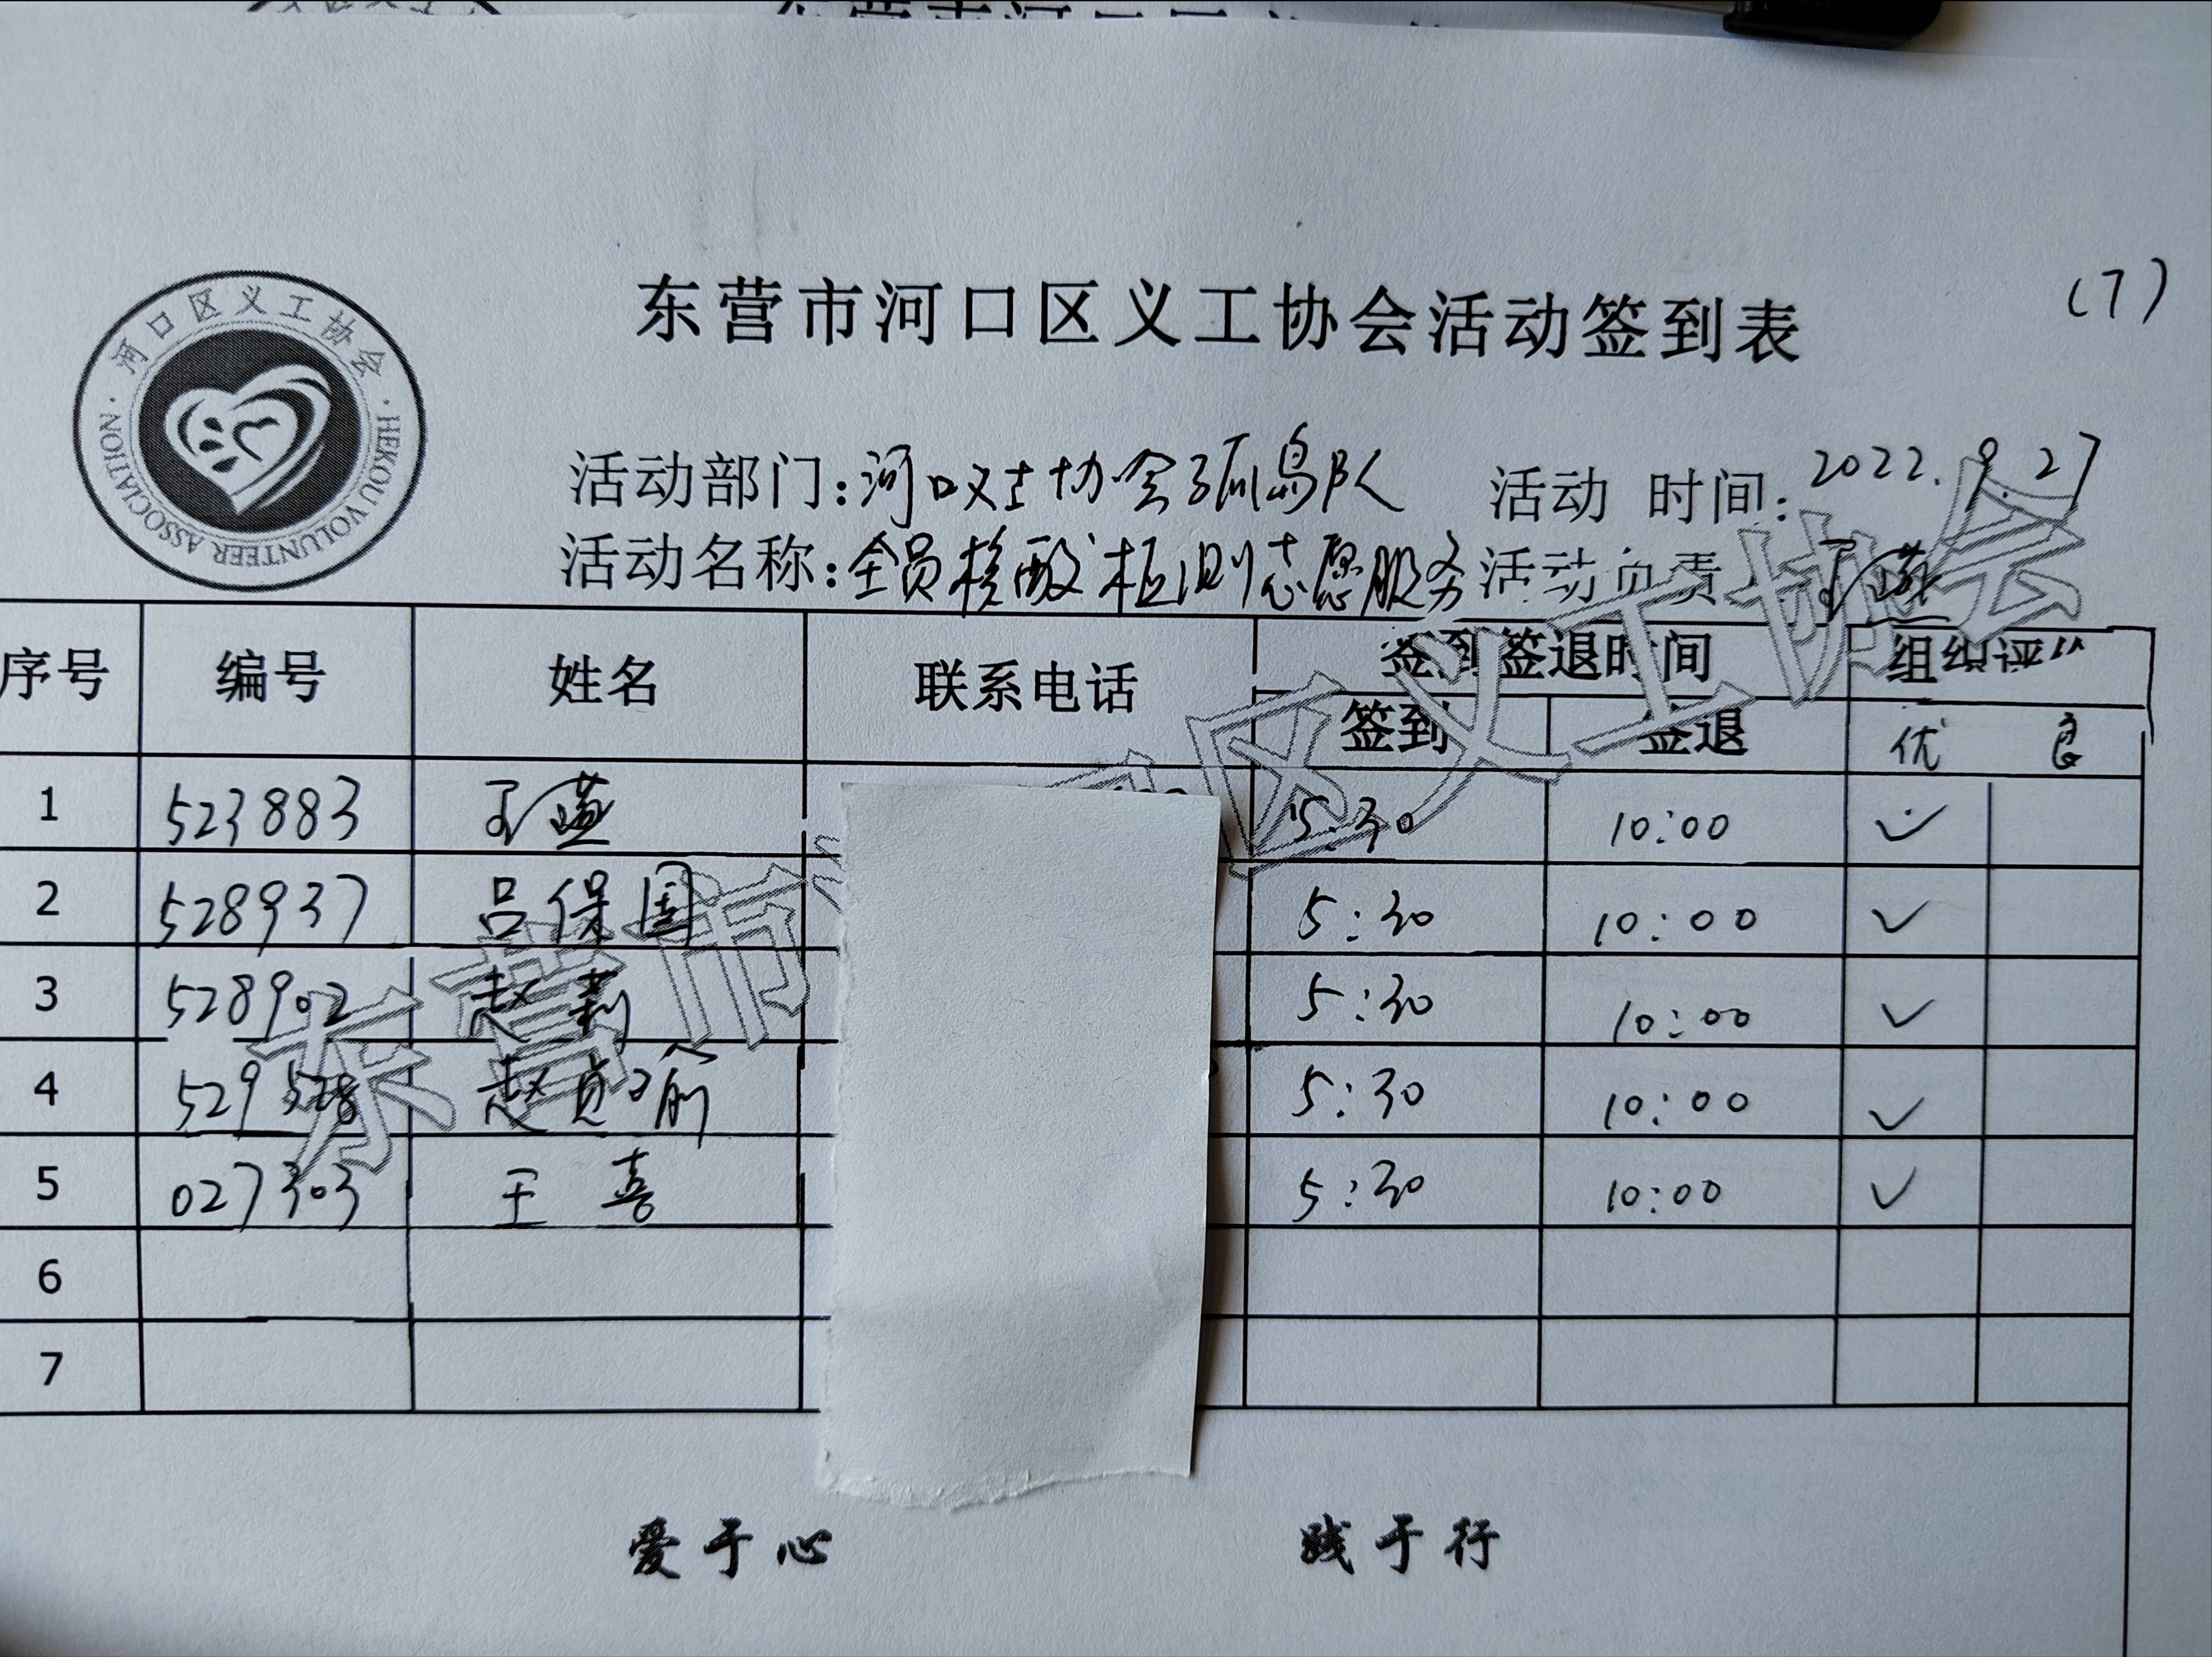 东营市河口区义工协会活动签到表
(7)
河口区义工协会
HEKOU VOLUNTEER ASSOCIATION
活动部门:河口义工协会孤岛队 活动 时间:2022.9.27
活动名称:全员核酸检测志愿服务 活动负责
序号 编号 姓名 联系电话 签到签退时间 组织评价
签到 签退 优 良
1 523883 5:30 10:00 ✓
2 528937 吕保国 5:30 10:00 ✓
3 528902 赵莉 5:30 10:00 ✓
4 529528 赵贞俞 5:30 10:00 ✓
5 027303 王喜 5:30 10:00 ✓
6
7
东营市 区义工协会
爱于心 践于行